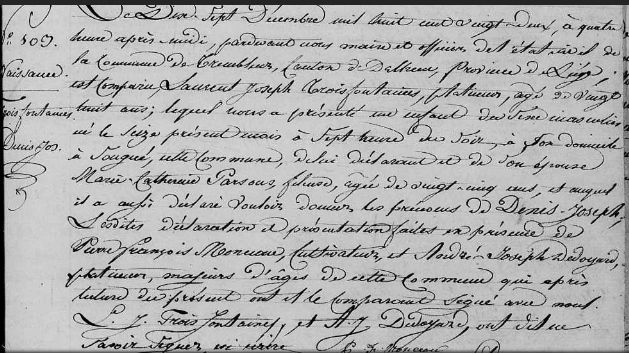 Le Dix Sept Décembre mil huit cent vingt-deux, à quatre
N°. 103.
heure après-midi, pardevant nous maire et officier de l'état civil de
Naissance
la Commune de Trembleur, Canton de Dalhem, Province de Liège,
est Comparu Laurent Joseph Troisfontaines, platineur, agé de vingt
Troisfontaines
huit ans; lequel nous a présenté un enfant du sexe masculin
Denis Jos.
né le Seize présent mois à Sept heure du Soir, à Son domicile
à cette Commune, de lui déclarant et de Son épouse
Marie-Catherine fileuse, agée de vingt-cinq ans, et auquel
il a aussi déclaré vouloir donner les prénoms de Denis-Joseph,
Lesdites déclaration et présentation faites en présence de
Pierre François Monceau, Cultivateur, et André-Joseph Dedoyard,
platineur, majeurs d'âges de cette Commune qui après
lecture du présent ont et le comparant Signé avec nous.
L. J. Trois fontaines, et A. J. Dedoyard, ont dit ne
Savoir Signer, ni écrire
Monceau